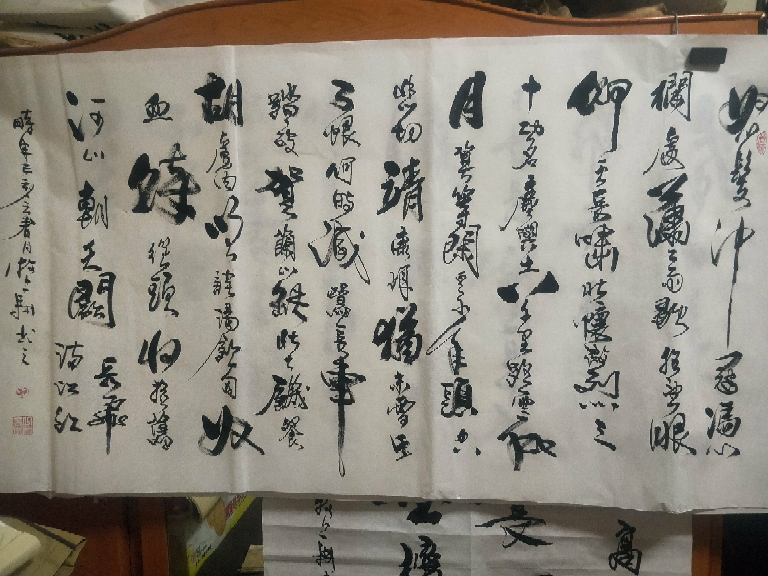 怒髮沖冠憑
欄處瀟瀟雨歇抬望眼
仰天長嘯壯懷激烈三
十功名塵與土八千里路雲和
月莫等閑白了少年頭空
悲切靖康耻猶未雪臣
子恨何時滅駕長車
踏破賀蘭山缺壯志饑餐
胡虜肉笑談渴飲匈奴
血待從頭收拾舊
河山朝天闕
岳飛
滿江紅
時年己亥之春月於
高
受